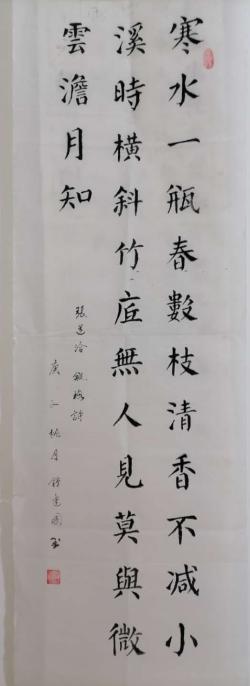 寒水一瓶春數枝清香不减小
溪時橫斜竹底無人見莫與微
雲澹月知
張道洽 瓶梅詩
庚子桃月